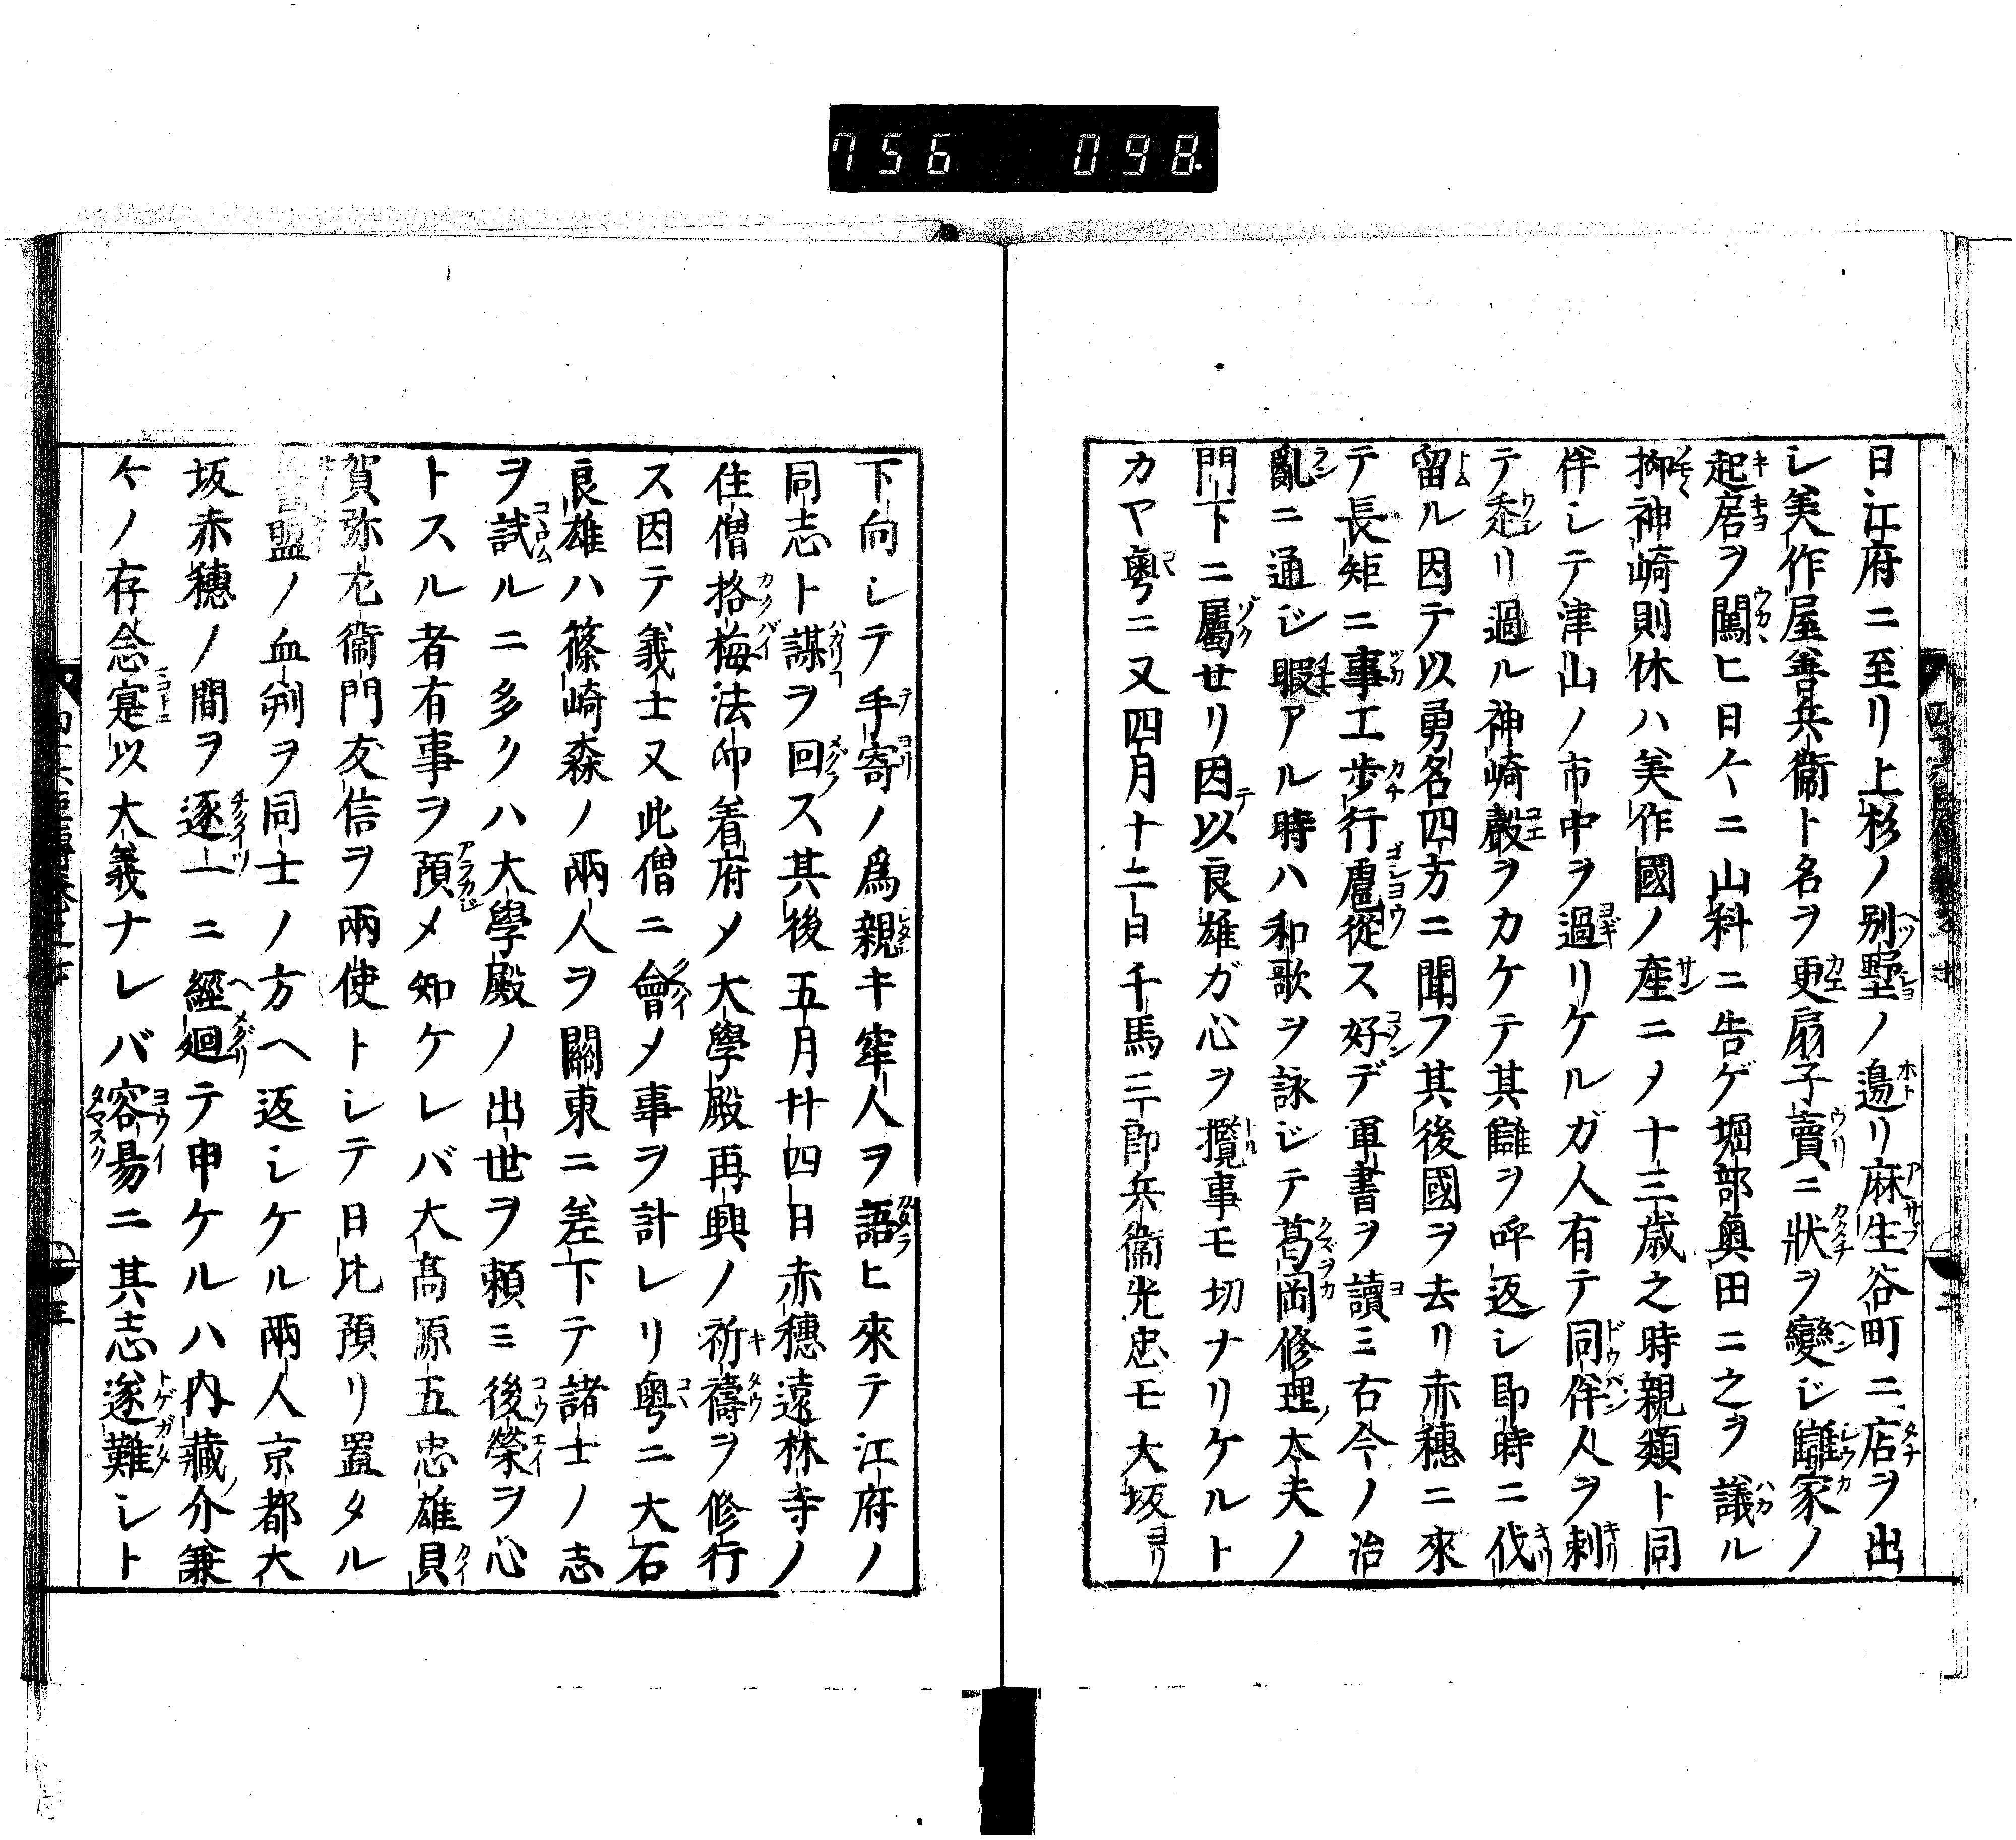 756 098.
日江府ニ至リ上杉ノ別墅ノ邉リ麻生谷町ニ店ヲ出
シ美作屋善兵衞ト名ヲ更扇子賣ニ狀ヲ變ジ讎家ノ
起居ヲ闖ヒ日々ニ山科ニ告ゲ堀部奥田ニ之ヲ議ル
抑神崎則休ハ美作國ノ産ニメ十三歳之時親類ト同
伴シテ津山ノ市中ヲ過リケルガ人有テ同伴人ヲ刺
テ走リ過ル神崎聲ヲカケテ其讎ヲ呼返シ即時ニ伐
留ル因テ以勇名四方ニ聞フ其後國ヲ去リ赤穗ニ來
テ長矩ニ事エ歩行扈從ス好デ軍書ヲ讀ミ古今ノ治
亂ニ通ジ暇アル時ハ和歌ヲ詠ジテ葛岡修理太夫ノ
門下ニ屬セリ因以良雄ガ心ヲ攬事モ切ナリケルト
カヤ粤ニ又四月十二日千馬三郎兵衞光忠モ大坂ヨリ
下向シテ手寄ノ爲親キ窂人ヲ語ヒ來テ江府ノ
同志ト謀ヲ回ス其後五月廿四日赤穗遠林寺ノ
住僧格梅法印着府メ大學殿再興ノ祈禱ヲ修行
ス因テ義士又此僧ニ會メ事ヲ計レリ粤ニ大石
良雄ハ篠崎森ノ兩人ヲ關東ニ差下テ諸士ノ志
ヲ試ルニ多クハ大學殿ノ出世ヲ頼ミ後榮ヲ心
トスル者有事ヲ預メ知ケレバ大髙源五忠雄貝
賀弥九衞門友信ヲ兩使トシテ日比預リ置タル
盟ノ血判ヲ同士ノ方ヘ返シケル兩人京都大
坂赤穗ノ間ヲ逐一ニ經廻テ申ケルハ内藏介兼
々ノ存念寔以大義ナレバ容易ニ其志遂難シト